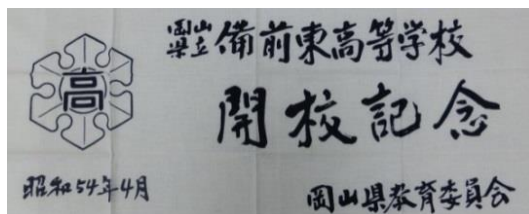 岡山県立備前東高等学校
開校記念
高
昭和54年4月
岡山県教育委員会